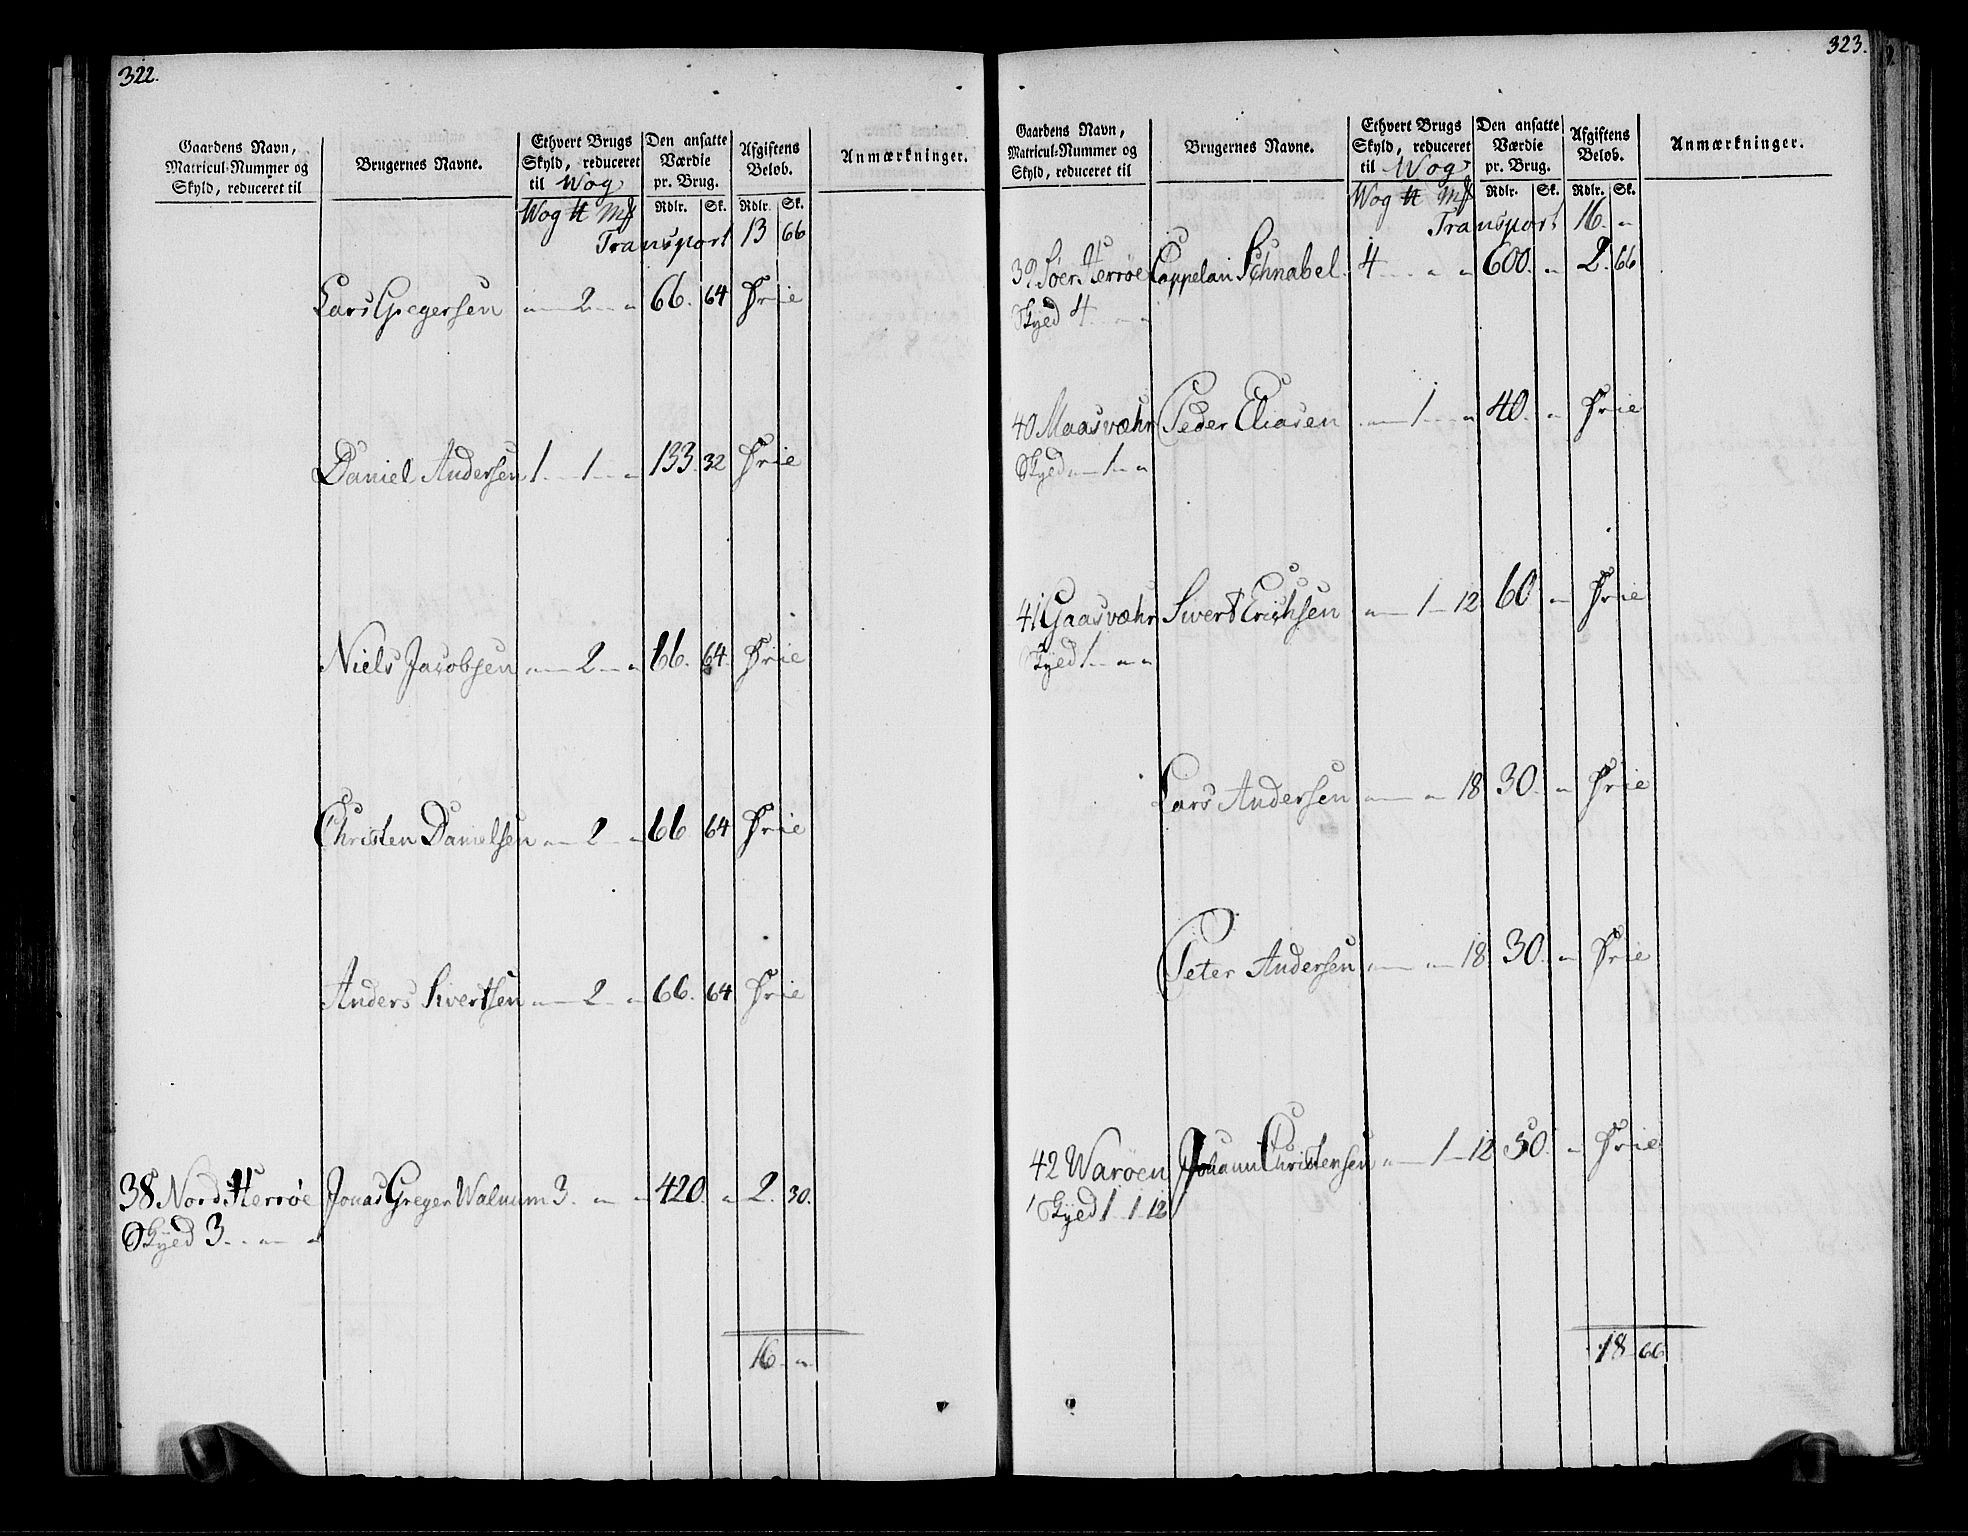 322.
Gaardens Navn, Matricul-Nummer og Skyld, reduceret til
Brugernes Navne.
Ethvert Brugs Skyld, reduceret til Wog
Den ansatte Værdie pr. Brug.
Afgiftens Beløb.
Anmærkninger.
Wog ℔ Mk Rdlr. Sk. Rdlr. Sk.
Transport 13 66
Lars Gregersen " 2 " 66. 64 Frie
Daniel Andersen 1 1 " 133. 32 Frie
Niels Jacobsen " 2 " 66. 64 Frie
Christen Danielsen " 2 " 66 64 Frie
Anders Sivertsen " 2 " 66. 64 Frie
38 Nord Herrøe Jonas Greger Walnum 3 " " 420. " 2. 30.
Skyed 3 " "
16 "
323.
Gaardens Navn, Matricul-Nummer og Skyld, reduceret til
Brugernes Navne.
Ethvert Brugs Skyld, reduceret til Wog
Den ansatte Værdie pr. Brug.
Afgiftens Beløb.
Anmærkninger.
Wog ℔ Mk Rdlr. Sk. Rdlr. Sk.
Transport 16. "
39 Søer Herrøe Cappelan Schnabel. 4 " " 600. " 2. 66
Skyed 4 " "
40 Maasvæhr Peder Eliasen " 1 " 40. " Frie
Skyed " 1 "
41 Gaasvæhr Sivert Erichsen " 1 12 60 " Frie
Skyed 1 " "
Lars Andersen " " 18 30. " Frie
Peter Andersen " " 18 30. " Frie
42 Warøen Johann Christensen " 1 12 50. " Frie
Skyed 1 1 12
18 66